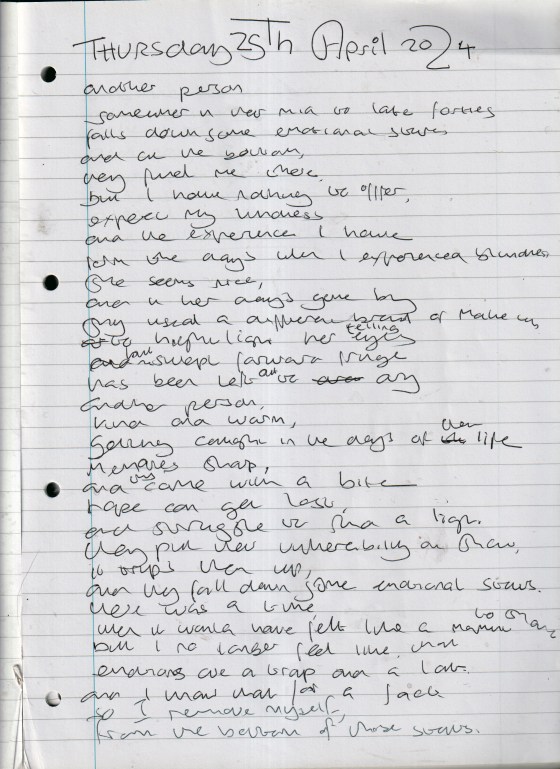 THURSDAY 25Th April 2024
another person
somewher in her mid to late forties
falls down some emotional stairs
and at the bottom,
they find me there,
but I have nothing to offer,
expect my kindness
and the experience I have
from the days when I experienced blindness
She seems nice,
and in her days gone by
She used a different brand of make up
to highlight her telling eyes
and swept forward fringe
has been left out to dry
another person,
kind and warm,
Getting caught in the days of their life
Memories snap,
and come with a bite
hope can get lost,
and struggle to find a light.
they put their vulnerability on show,
it trips them up,
and they fall down some emotional stairs.
there was a time,
when it would have felt like a to share
but I no longer feel like that
emotions are a trap and a
and I know that for a fact
so I remove myself,
from the bottom of those stairs.